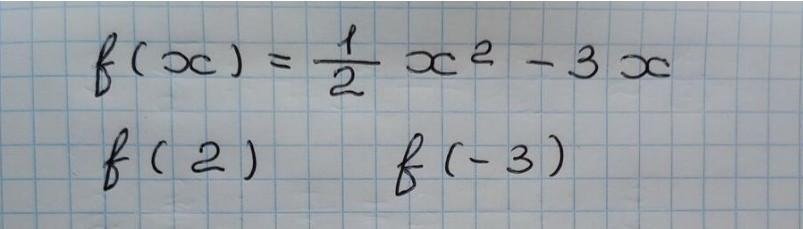 f(x) = 1/2 x² - 3x
f(2) f(-3)